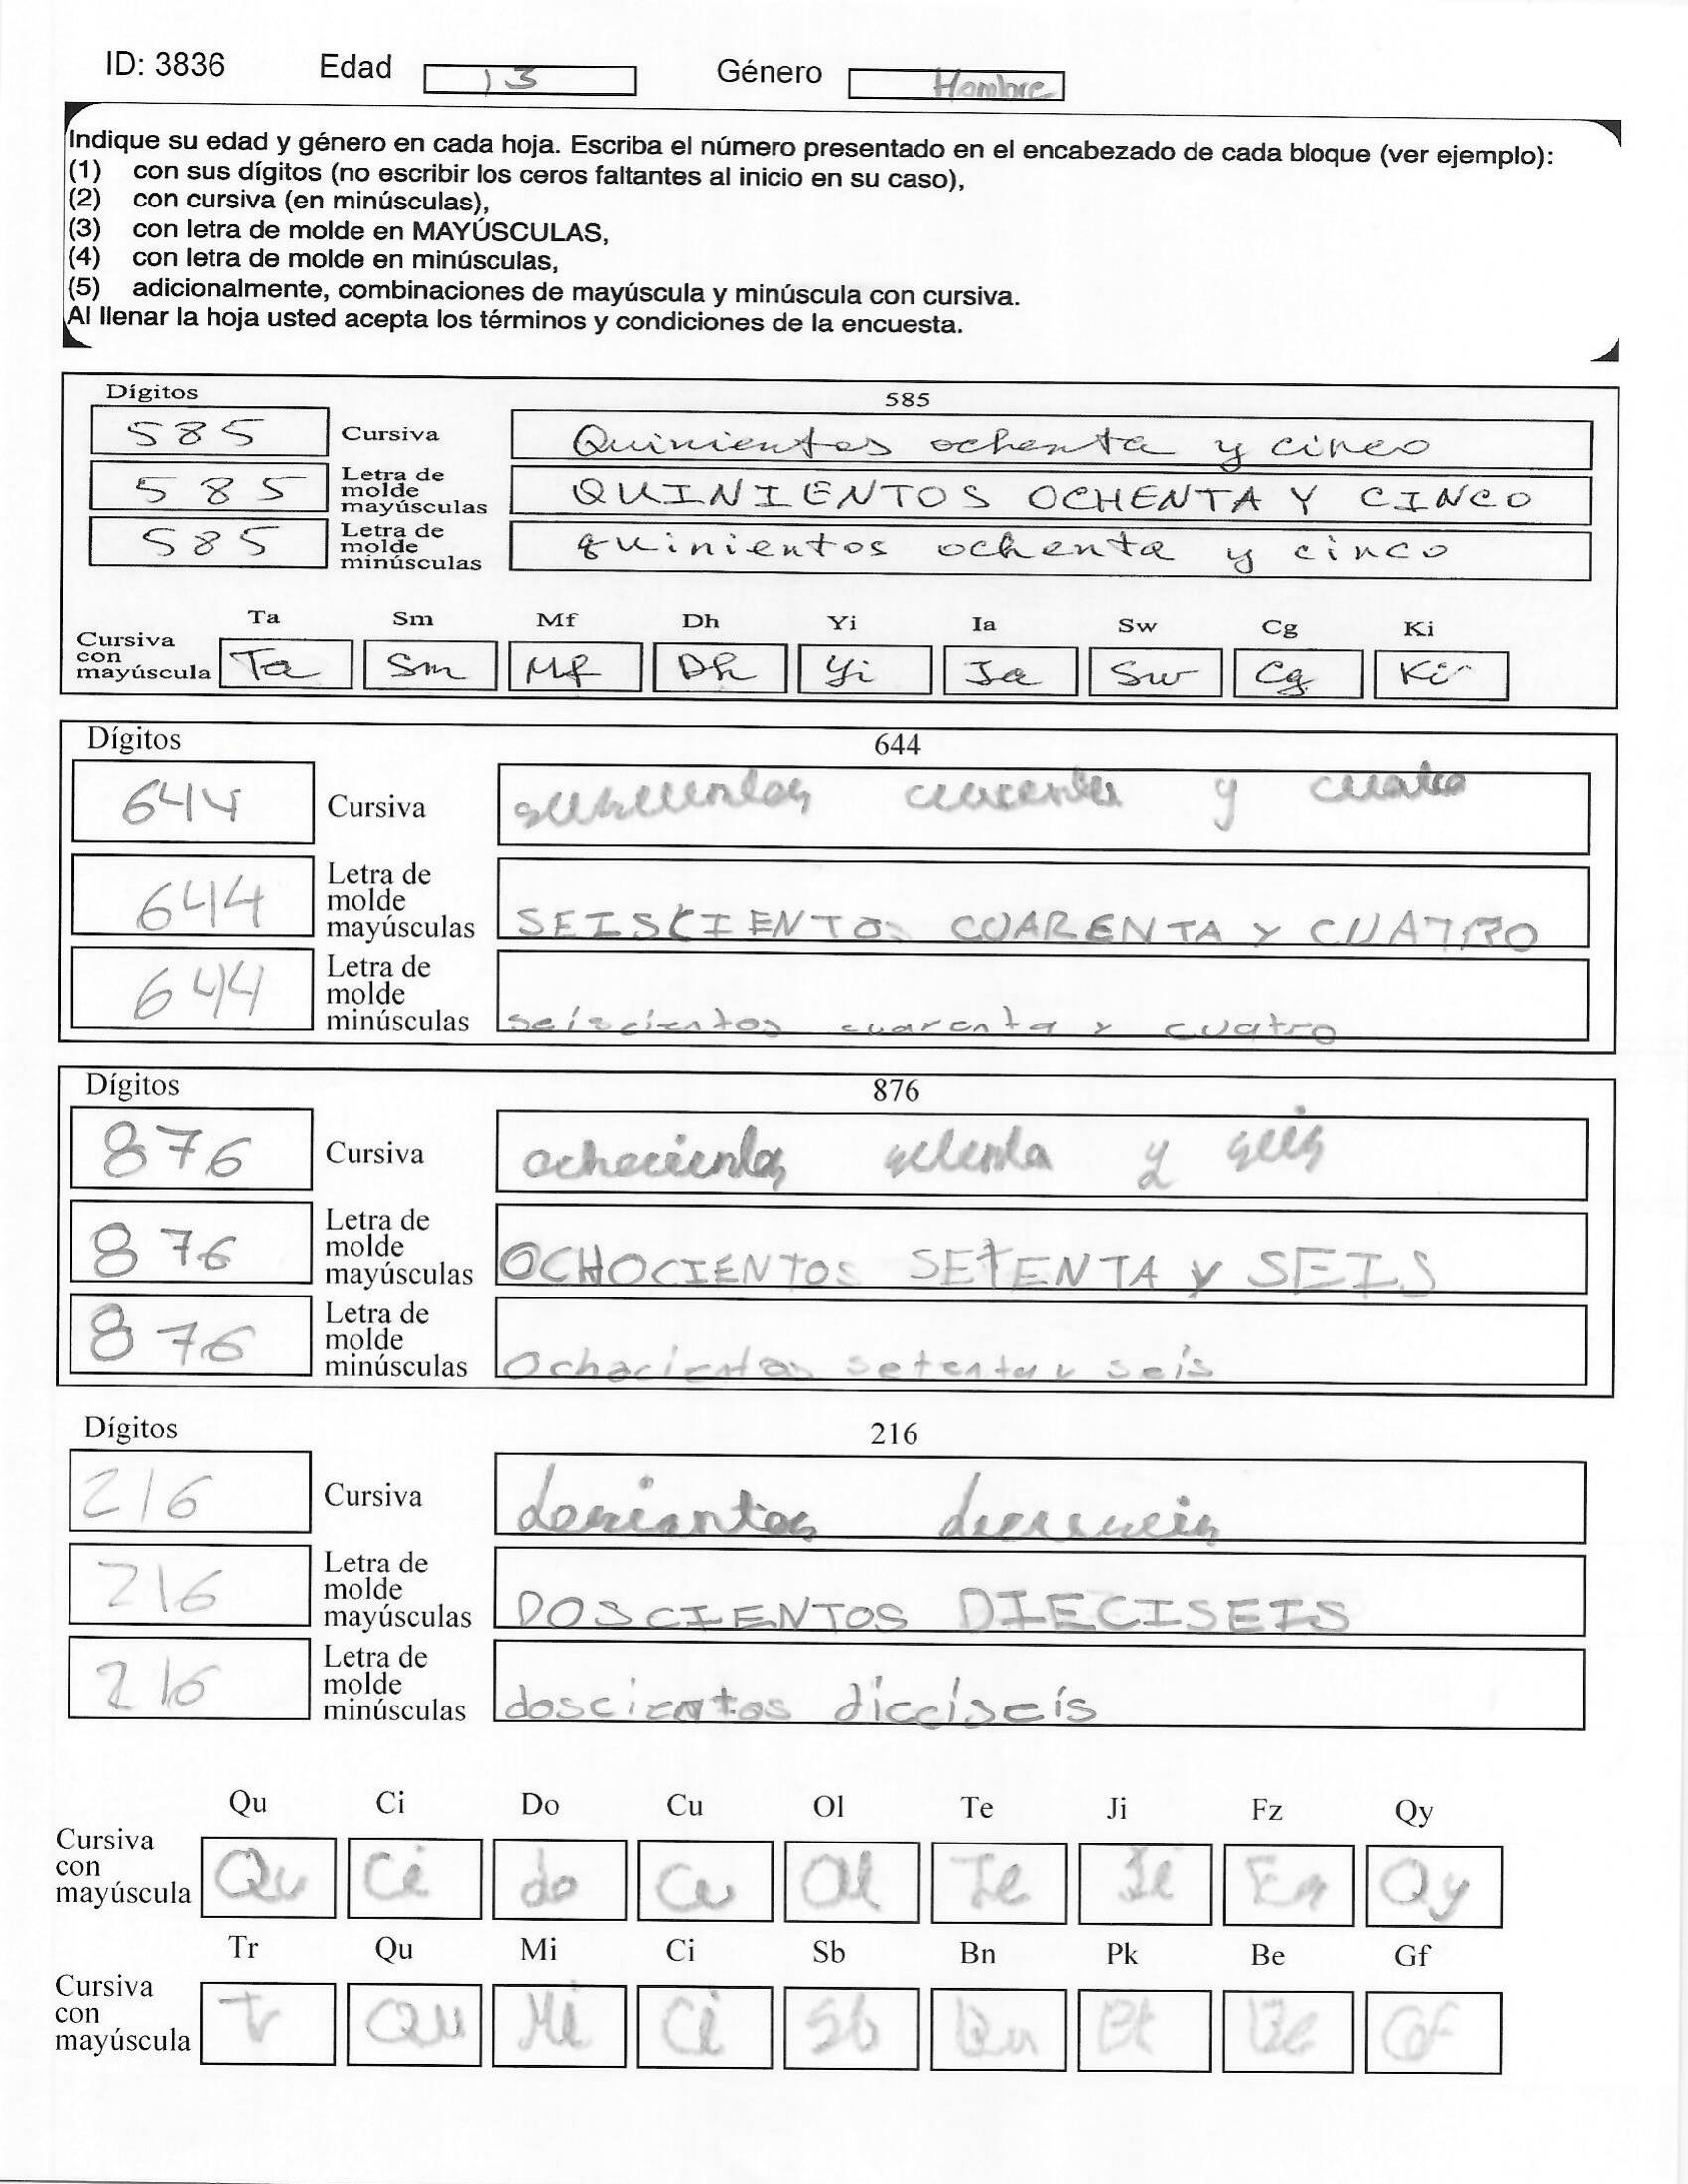 ID: 3836 Edad 13 Género Hombre
Indique su edad y género en cada hoja. Escriba el número presentado en el encabezado de cada bloque (ver ejemplo):
(1) con sus dígitos (no escribir los ceros faltantes al inicio en su caso),
(2) con cursiva (en minúsculas),
(3) con letra de molde en MAYÚSCULAS,
(4) con letra de molde en minúsculas,
(5) adicionalmente, combinaciones de mayúscula y minúscula con cursiva.
Al llenar la hoja usted acepta los términos y condiciones de la encuesta.
Dígitos 585
585 Cursiva Quinientos ochenta y cinco
585 Letra de molde mayúsculas QUINIENTOS OCHENTA Y CINCO
585 Letra de molde minúsculas quinientos ochenta y cinco
Ta Sm Mf Dh Yi Ia Sw Cg Ki
Cursiva con mayúscula Ta Sm Mf Dh Yi Ia Sw Cg Ki
Dígitos 644
644 Cursiva y cuatro
644 Letra de molde mayúsculas SEISCIENTOS CUARENTA Y CUATRO
644 Letra de molde minúsculas seiscientos cuarenta y cuatro
Dígitos 876
876 Cursiva ochocientos setenta y seis
876 Letra de molde mayúsculas OCHOCIENTOS SETENTA y SEIS
876 Letra de molde minúsculas Ochocientos setenta y seis
Dígitos 216
216 Cursiva
216 Letra de molde mayúsculas DOSCIENTOS DIECISEIS
216 Letra de molde minúsculas doscientos dieciseis
Qu Ci Do Cu Ol Te Ji Fz Qy
Cursiva con mayúscula Qu Ci do Cu Ol Te Ji Qy
Tr Qu Mi Ci Sb Bn Pk Be Gf
Cursiva con mayúscula Tr QU Mi Ci Sb Bn Pk Be Gf